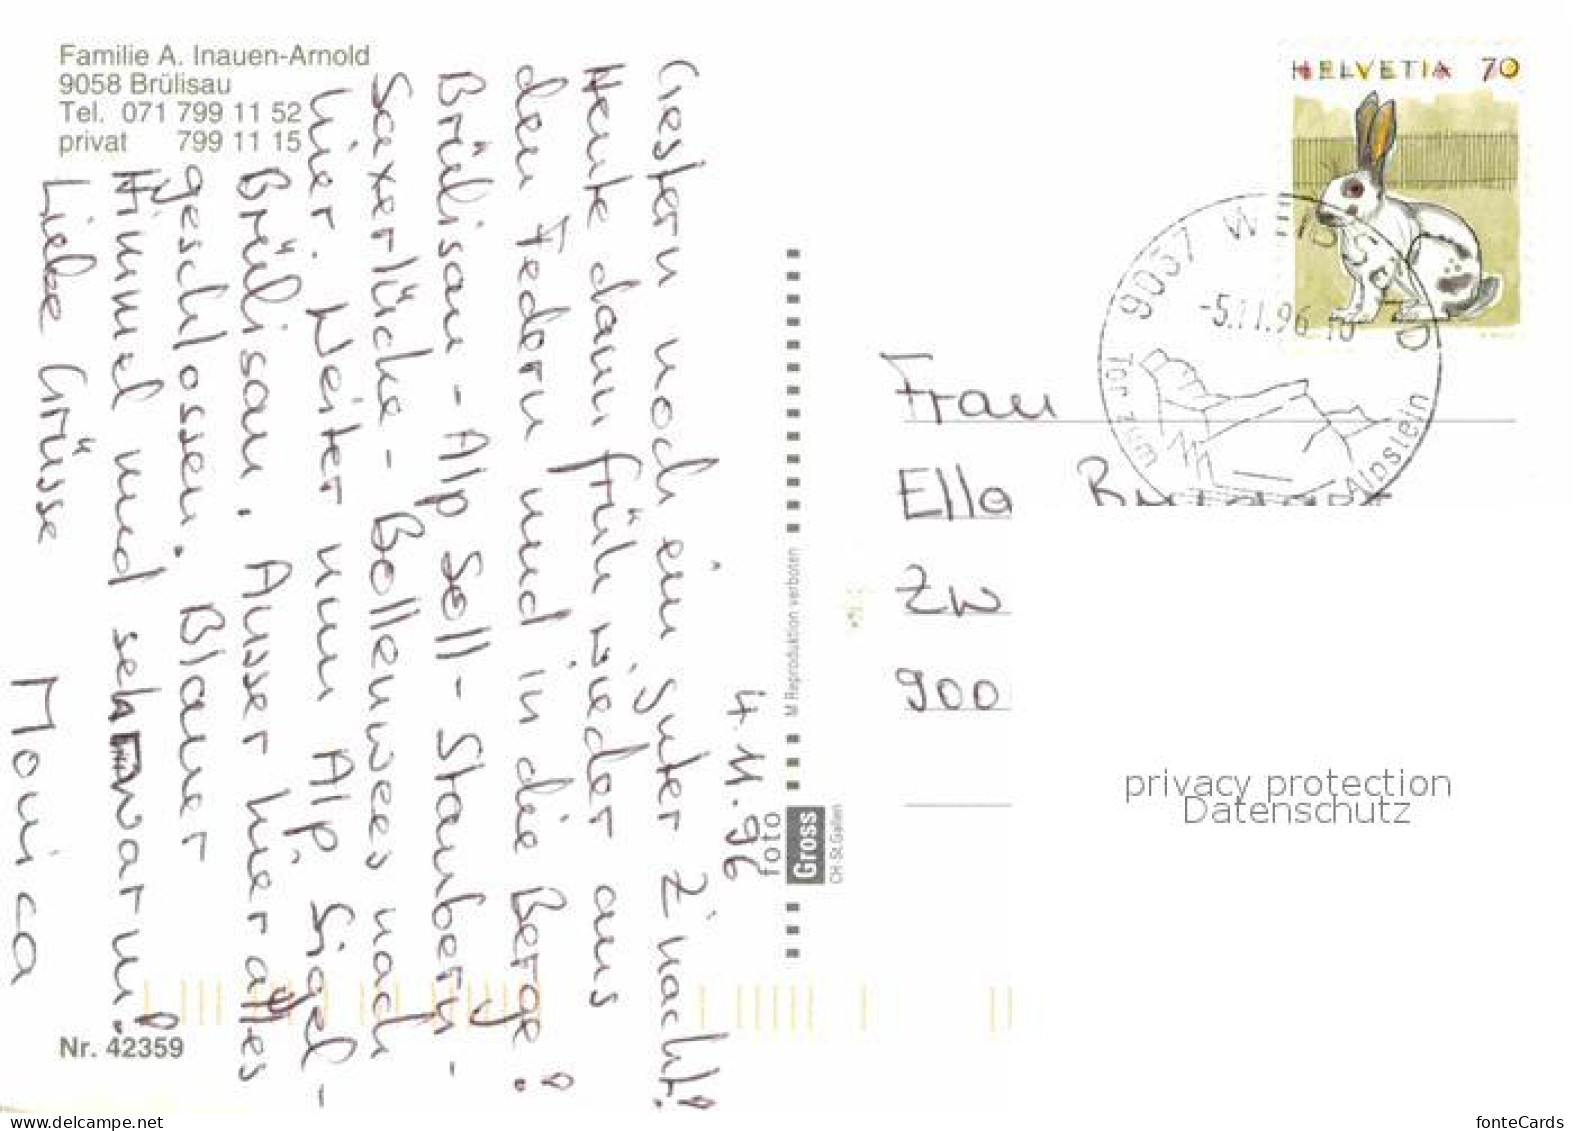 Familie A. Inauen-Arnold
9058 Brülisau
Tel. 071 799 11 52
privat 799 11 15
4. 11. 96
Gestern noch ein guter Z'nacht!
Heute dann früh wieder aus
den Federn und in die Berge!
Brülisau - Alp Soll - Staubern -
Saxerlücke - Bollenwees nach
hier. Weiter nun Alp Sigel -
Brülisau. Ausser hier alles
geschlossen. Blauer
Himmel und sehr warm!
Liebe Grüsse
Monica
Nr. 42359
M Reproduktion verboten
foto
Gross
CH-St.Gallen
HELVETIA 70
9057 WEISSBAD
-5.11.96-10
Tor zum Alpstein
Frau
Ella
Zw
900
privacy protection
Datenschutz
www.delcampe.net
fonteCards